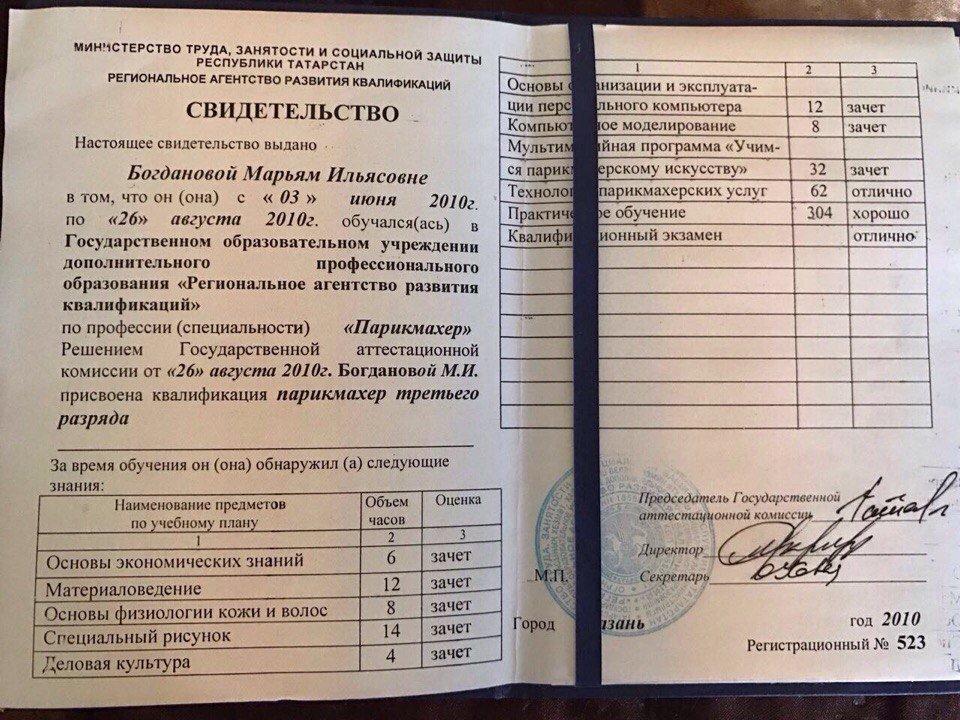 МИНИСТЕРСТВО ТРУДА, ЗАНЯТОСТИ И СОЦИАЛЬНОЙ ЗАЩИТЫ
РЕСПУБЛИКИ ТАТАРСТАН
РЕГИОНАЛЬНОЕ АГЕНТСТВО РАЗВИТИЯ КВАЛИФИКАЦИЙ
СВИДЕТЕЛЬСТВО
Настоящее свидетельство выдано
Богдановой Марьям Ильясовне
в том, что он (она) с « 03 » июня 2010г.
по «26» августа 2010г. обучался(ась) в
Государственном образовательном учреждении
дополнительного профессионального
образования «Региональное агентство развития
квалификаций»
по профессии (специальности) «Парикмахер»
Решением Государственной аттестационной
комиссии от «26» августа 2010г. Богдановой М.И.
присвоена квалификация парикмахер третьего
разряда
За время обучения он (она) обнаружил (а) следующие
знания:
Наименование предметов по учебному плану Объем часов Оценка
1 2 3
Основы экономических знаний 6 зачет
Материаловедение 12 зачет
Основы физиологии кожи и волос 8 зачет
Специальный рисунок 14 зачет
Деловая культура 4 зачет
1 2 3
Основы анизации и эксплуата-
ции перс льного компьютера 12 зачет
Компьют ное моделирование 8 зачет
Мультим ийная программа «Учим-
ся парик ерскому искусству» 32 зачет
Технолог парикмахерских услуг 62 отлично
Практич е обучение 304 хорошо
Квалиф ционный экзамен отлично
Председатель Государственной
аттестационной комиссии
Директор
М.П. Секретарь
Город азань год 2010
Регистрационный № 523